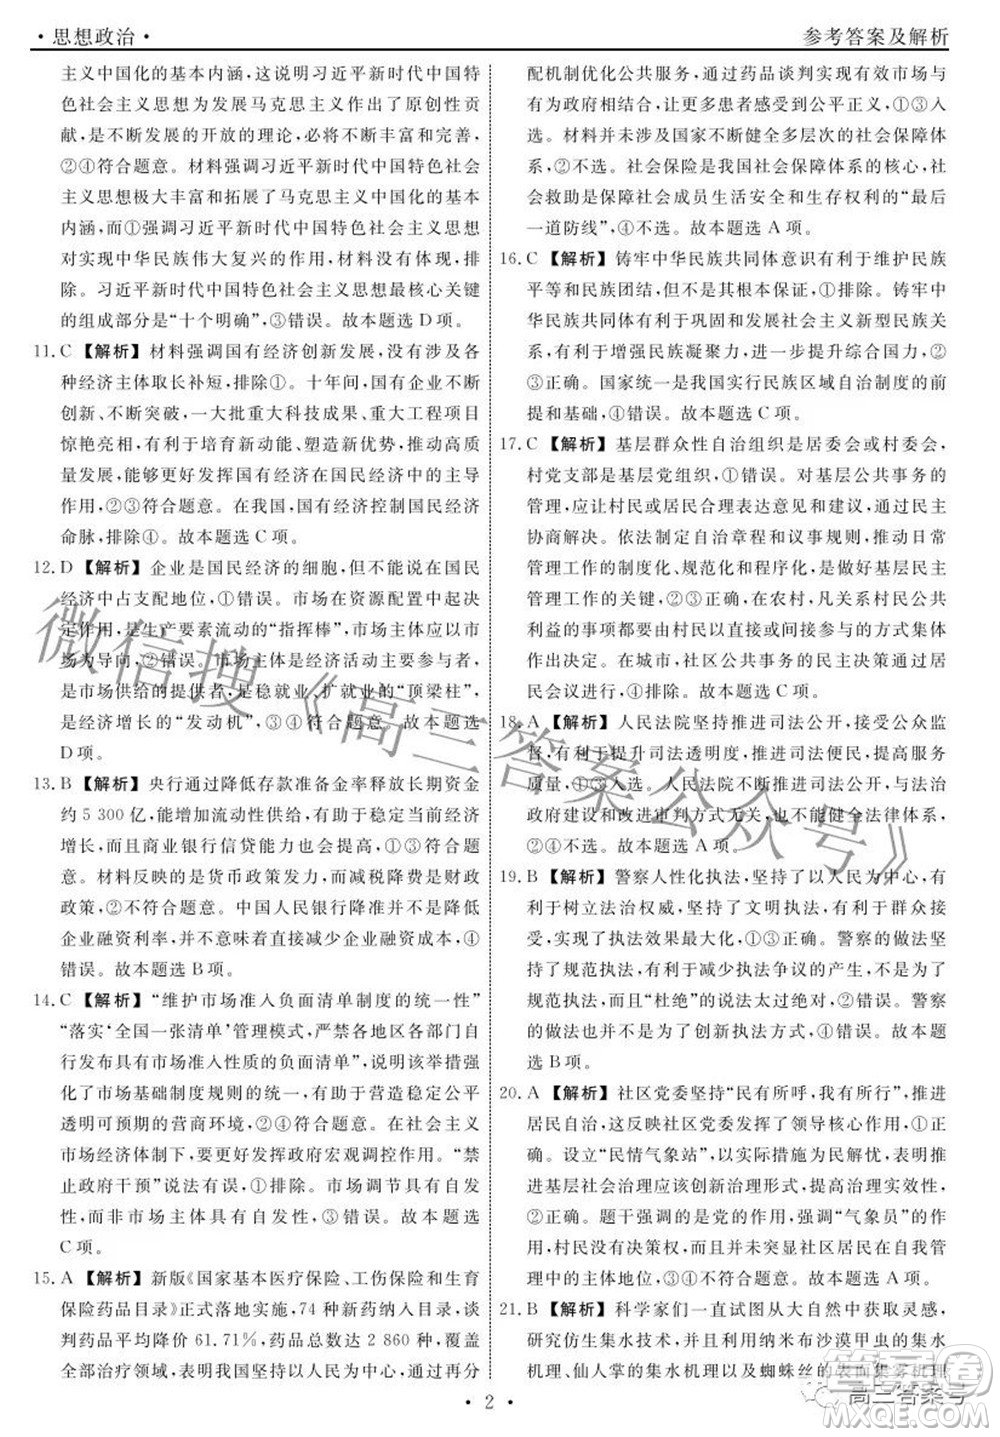 ·思想政治·
参考答案及解析
主义中国化的基本内涵，这说明习近平新时代中国特
色社会主义思想为发展马克思主义作出了原创性贡
献，是不断发展的开放的理论，必将不断丰富和完善，
②④符合题意。材料强调习近平新时代中国特色社会
主义思想极大丰富和拓展了马克思主义中国化的基本
内涵，而①强调习近平新时代中国特色社会主义思想
对实现中华民族伟大复兴的作用，材料没有体现，排
除。习近平新时代中国特色社会主义思想最核心关键
的组成部分是“十个明确”，③错误。故本题选D项。
11. C 【解析】材料强调国有经济创新发展，没有涉及各
种经济主体取长补短，排除①。十年间，国有企业不断
创新、不断突破，一大批重大科技成果、重大工程项目
惊艳亮相，有利于培育新动能、塑造新优势，推动高质量
发展，能够更好发挥国有经济在国民经济中的主导
作用，②③符合题意。在我国，国有经济控制国民经济
命脉，排除④。故本题选C项。
12. D 【解析】企业是国民经济的细胞，但不能说在国民
经济中占支配地位，①错误。市场在资源配置中起决
定作用，是生产要素流动的“指挥棒”，市场主体应以市
场为导向，②错误。市场主体是经济活动主要参与者，
是市场供给的提供者，是稳就业的“顶梁柱”，
是经济增长的“发动机”，③④符合题意。故本题选
D项。
13. B 【解析】央行通过降低存款准备金率释放长期资金
约5 300亿，能增加流动性供给，有助于支撑当前经济
增长，商业银行信贷能力也会提高，①③符合题
意。材料反映的是货币政策发力，而减税降费是财政
政策，②不符合题意。中国人民银行降准并不是降低
企业融资利率，不意味着直接减少企业融资成本，④
错误。故本题选B项。
14. C 【解析】“维护市场准入负面清单制度的统一性”
“落实‘全国一张清单’管理模式，严禁各地区各部门自
行发布具有市场准入性质的负面清单”，说明该举措强
化了市场基础制度规则的统一，有助于营造稳定公平
透明可预期的营商环境，②④符合题意。在社会主义
市场经济体制下，要发挥政府宏观调控作用。“禁
止政府干预”说法有误，①排除。市场调节具有自发
性，而非市场主体具有自发性，③错误。故本题选
C项。
15. A 【解析】新版《国家基本医疗保险、工伤保险和生育
保险药品目录》正式落地实施，74种新药纳入目录，谈
判药品平均降价61.71%，药品总数达2 860种，覆盖
全部治疗领域，表明我国坚持以人民为中心，通过再分
配机制优化公共服务，通过药品谈判实现有效市场与
有为政府相结合，让更多患者感受到公平正义，①③入
选。材料并未涉及国家不断健全多层次的社会保障体
系，②不选。社会保险是我国社会保障体系的核心，社
会救助是保障社会成员生活安全和生存权利的“最后
一道防线”，④不选。故本题选A项。
16. C 【解析】铸牢中华民族共同体意识有利于维护民族
平等和民族团结，但不是其根本保证，①排除。铸牢中
华民族共同体有利于巩固和发展社会主义新型民族关
系，有利于增强民族凝聚力，进一步提升综合国力，②
③正确。国家统一是我国实行民族区域自治制度的前
提和基础，④错误。故本题选C项。
17. C 【解析】基层群众性自治组织是居委会或村委会，
村党支部是基层党组织，①错误。对基层公共事务的
管理，应让村民或居民合理表达意见建议，通过民主
协商解决。依法制定自治章程和议事规则，推动日常
管理工作的制度化、规范化和程序化，是做好基层民主
管理工作的关键，②③正确。在农村，凡关系村民公共
利益的事项都要由村民以直接或间接参与的方式集体
作出决定。在城市，社区公共事务的民主决策通过居
民会议进行，④排除。故本题选C项。
18. A 【解析】人民法院坚持推进司法公开，接受公众监
督，有利于提升司法透明度，推进司法便民，提高办案
质量，①③入选。人民法院不断推进司法公开，与法治
政府建设和改进审判方式无关，也不能健全法律体系，
②④不选。故本题选A项。
19. B 【解析】警察人性化执法，坚持了以人民为中心，有
利于树立法治权威，坚持了文明执法，有利于群众接受，
实现执法效果最大化，①③正确。警察的做法坚
持了规范执法，有利于减少执法争议的产生，不是杜绝，
“杜绝”的说法太过绝对，②错误。警察
的做法也不是为了创新执法方式，④错误。故本题
选B项。
20. A 【解析】社区党委坚持“民有所呼，我有所行”，推进
居民自治，这反映社区党委发挥了领导核心作用，①正
确。设立“民情气象站”，以实际措施为民解忧，表明推
进基层社会治理应该创新治理形式，提高治理效能，
②正确。题干强调的是党的作用，强调“气象员”的作用，
居民没有决策权，③错误。材料未突显社区居民在
管理中的主体地位，④错误。故本题选A项。
21. B 【解析】科学家们一直试图从大自然中获取灵感，
研究仿生集水技术，并且可以利用纳米布沙漠甲虫的集水
机理、仙人掌的集水机理以及蜘蛛丝的表面集雾机理
· 2 ·
微信搜《高三答案公众号》
高三答案号
答案圈
MXQE.COM